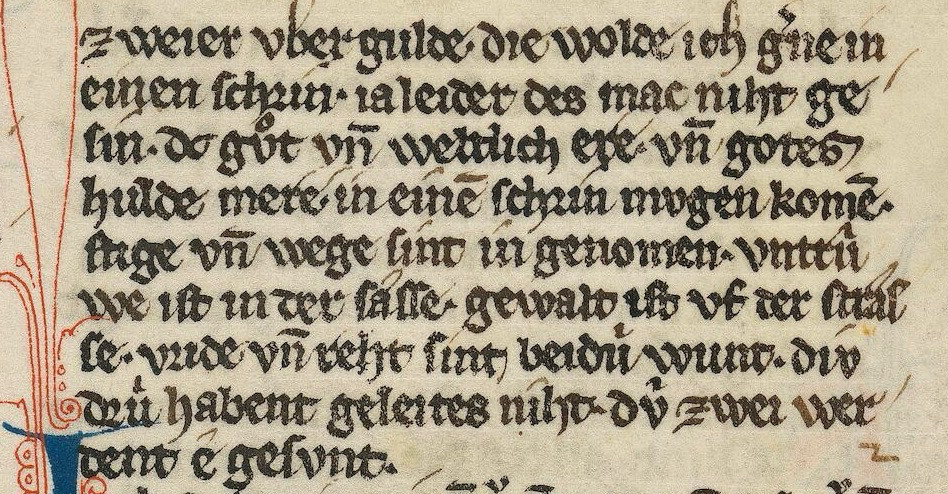 zweier vber gulde· die wolde ich g̾ne in
einen schrin· ia leider des mac niht ge
sin· dc gůt vn̄ weltlich ere· vn̄ gotes
hulde mere· in einē schrin mvgen komē·
stige vn̄ wege sint in genomen· vntrı̾v
we ist in der sasse· gewalt ist vf der stras
se· vride vn̄ reht sint beidv̾ wunt· div
drv̾ habent geleites niht· dv̾ zwei wer
dent e gesvnt·